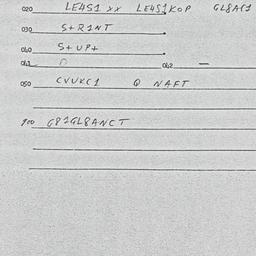 020 LE4S1 xx LE4S1KOP GL8A(1
030 S+R1NT
040 S+UP+
041 042 —
050 CVUKC1 Q NAFT
900 G81GL8ANCT